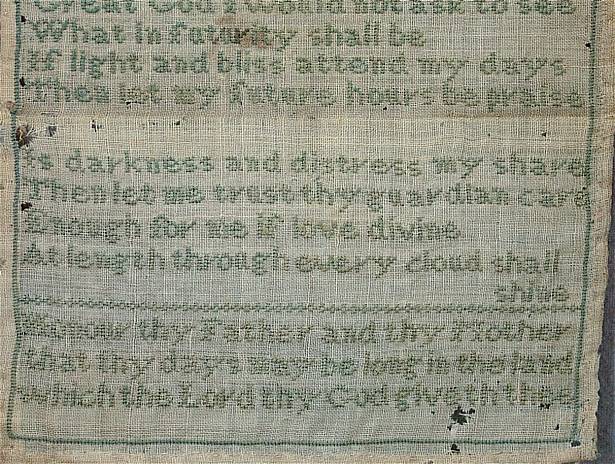 Great God I would not ask to see
What in futurity shall be
If light and bliss attend my days
Then let my future hours be praise
Is darkness and distress my share
Then let me trust thy guardian care
Enough for me if love divine
At length through every cloud shall
shine
Honour thy Father and thy Mother
that thy days may be long in the land
which the Lord thy God giveth thee